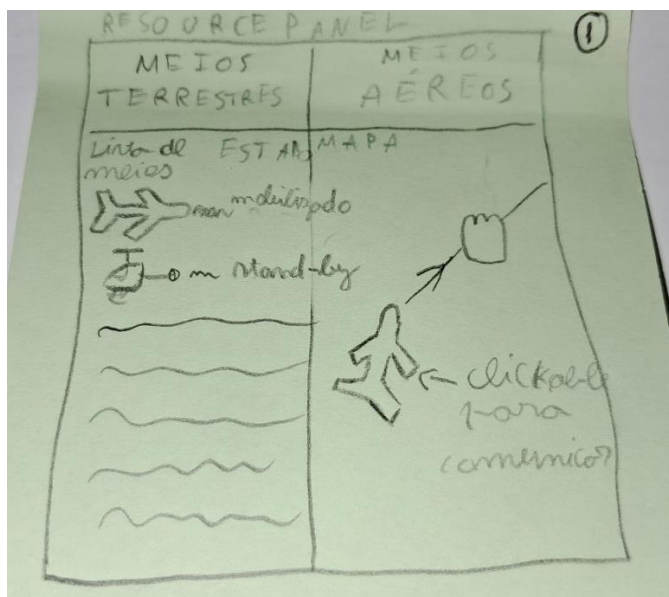 RESOURCE PANEL
①
MEIOS
TERRESTRES
MEIOS
AÉREOS
Lista de
meios
ESTADO
MAPA
mobilizado
stand-by
clickable
para
comunicar